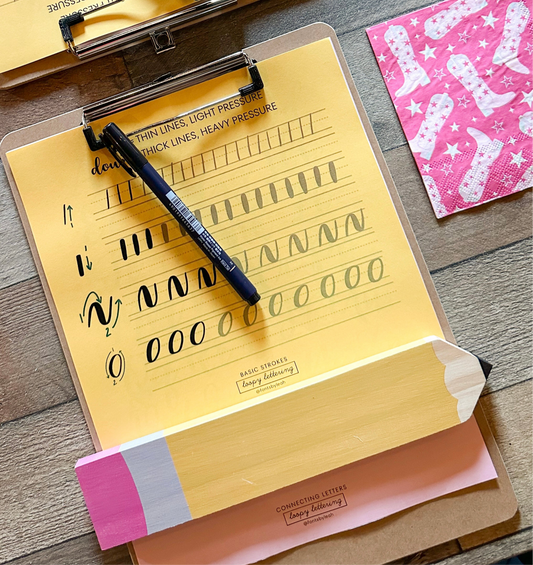 PRESSURE
THIN LINES, LIGHT PRESSURE
THICK LINES, HEAVY PRESSURE
1
2
2
BASIC STROKES
loopy lettering
@fontsbyleah
CONNECTING LETTERS
loopy lettering
@fontsbyleah